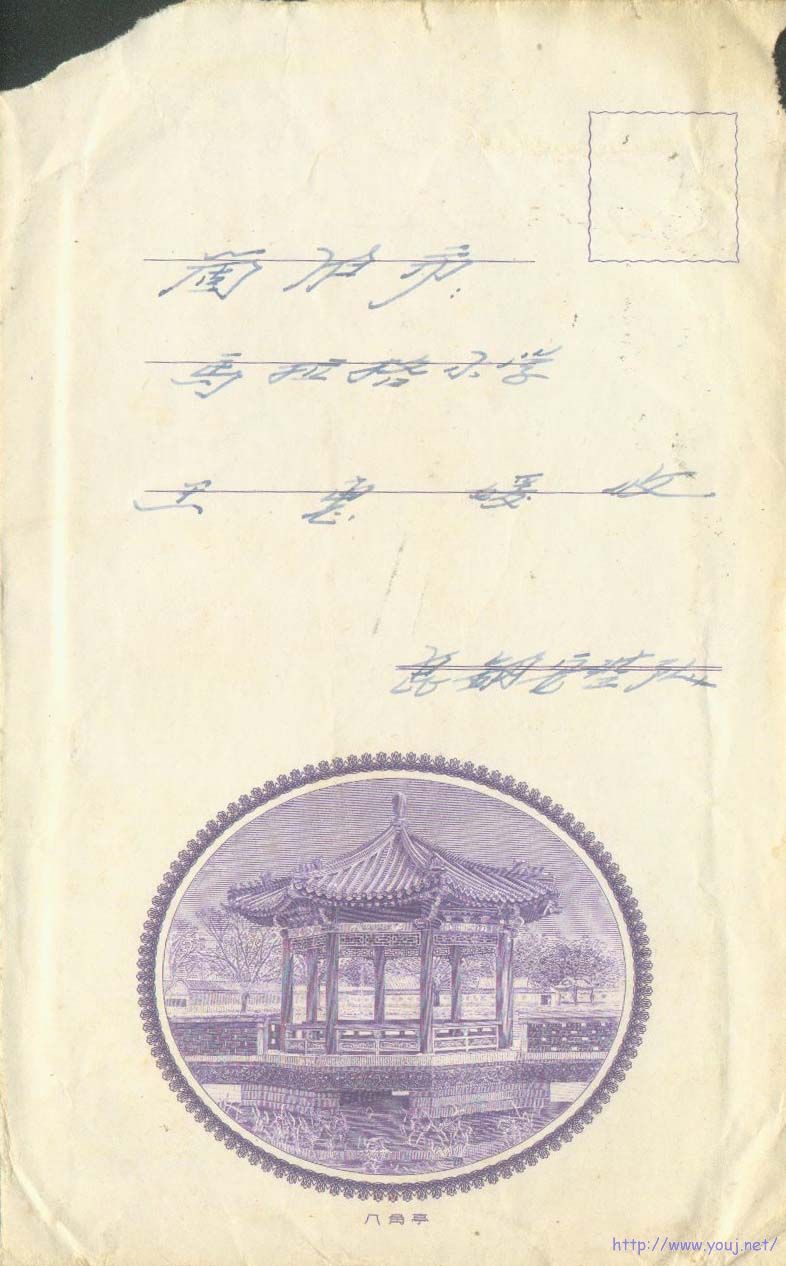 箇旧市
马拉格小学
王惠媛收
昆明
八角亭
http://www.youj.net/